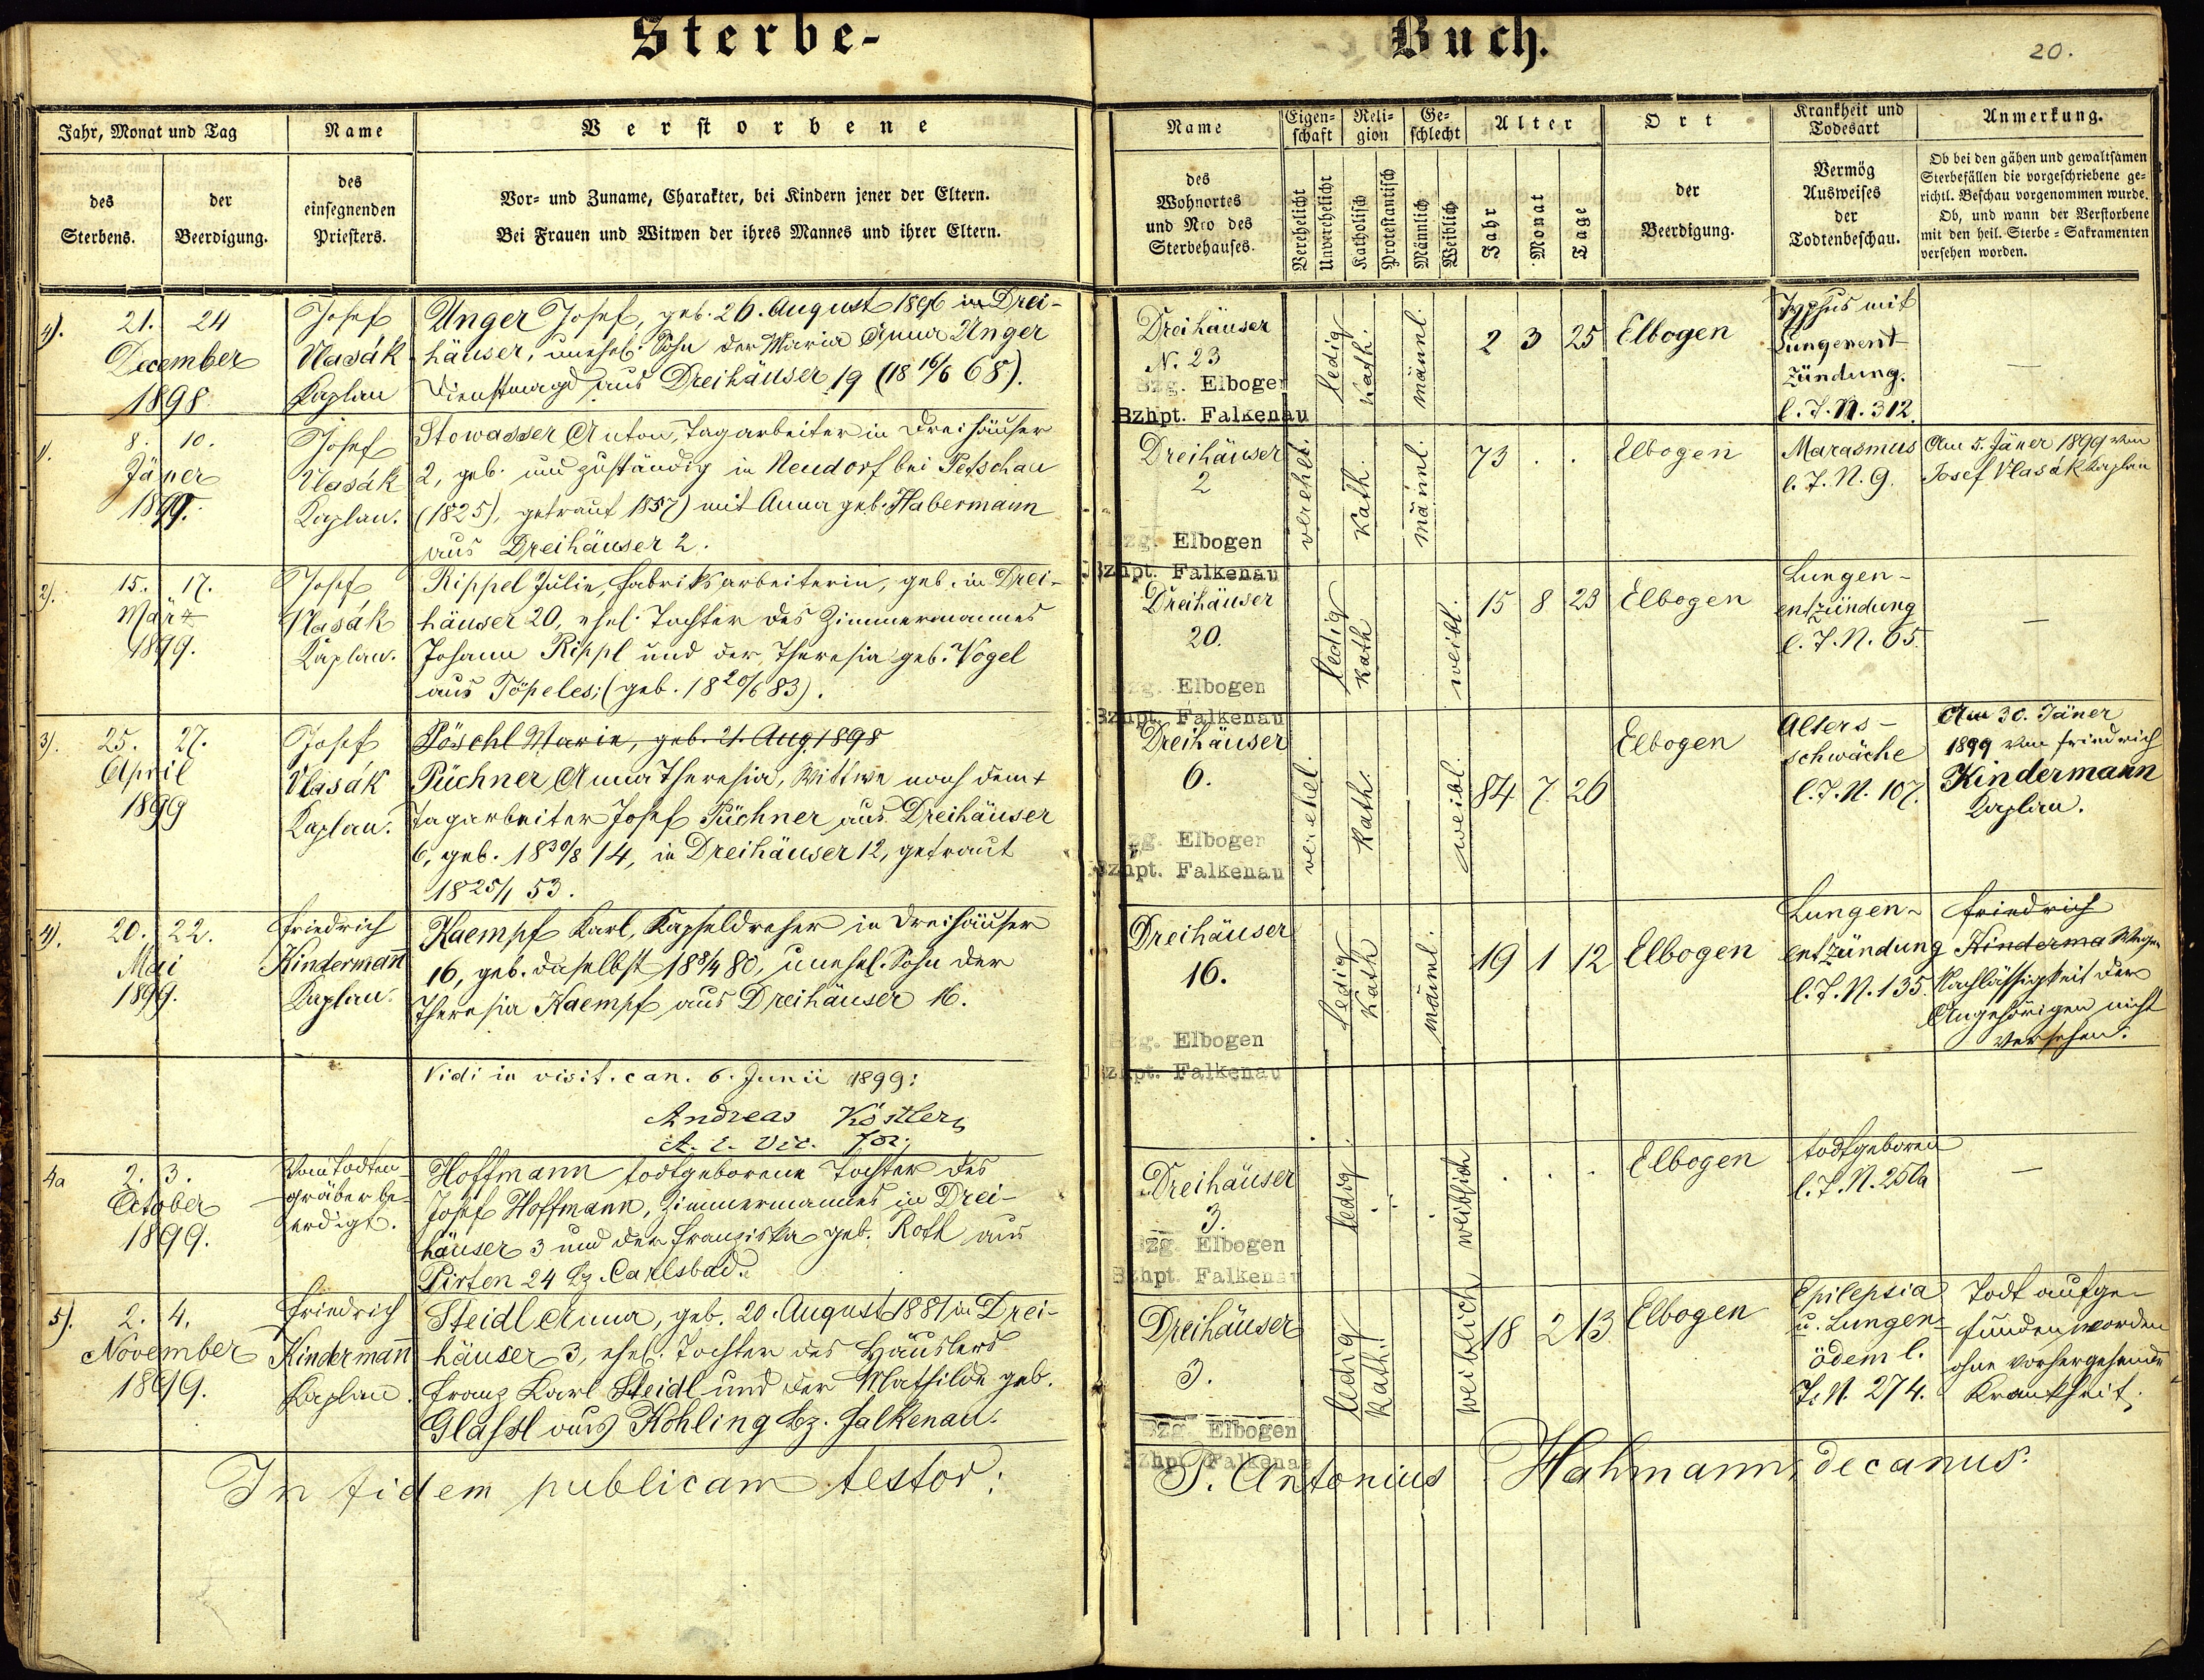 Sterbe-
Buch.
20.
Jahr, Monat und Tag
Name
Verstorbene
des
Sterbens.
der
Beerdigung.
des
einsegnenden
Priesters.
Vor- und Zuname, Charakter, bei Kindern jener der Eltern.
Bei Frauen und Witwen der ihres Mannes und ihrer Eltern.
Name
Eigen-
schaft
Reli-
gion
Ge-
schlecht
Alter
Ort
Krankheit und
Todesart
Anmerkung.
des
Wohnortes
und Nro des
Sterbehauses.
Verehelicht
Unverehelicht
Katholisch
Protestantisch
Männlich
Weiblich
Jahr
Monat
Tage
der
Beerdigung.
Vermög
Ausweises
der
Todtenbeschau.
Ob bei den gähen und gewaltsamen
Sterbefällen die vorgeschriebene ge-
richtl. Beschau vorgenommen wurde.
Ob, und wann der Verstorbene
mit den heil. Sterbe-Sakramenten
versehen worden.
4).
21. 24
December
1898
Josef
Vlasák
Kaplan
Unger Josef, geb. 26. August 1896 in Drei-
häuser, unehel. Sohn der Maria Anna Unger
Dienstmagd aus Dreihäuser 19 (18 16/6 68).
Dreihäuser
N. 23
Bzg. Elbogen
Bzhpt. Falkenau
ledig
Kath.
männl.
2 3 25
Elbogen
Typhus mit
Lungenent
zündung.
l. T. N. 312.
—
1.
8. 10.
Jäner
1899.
Josef
Vlasák
Kaplan.
Stowasser Anton, Tagarbeiter in Dreihäuser
2, geb. und zuständig in Neudorf bei Petschau
(1825), getraut 1857) mit Anna geb. Habermann
aus Dreihäuser 2.
Dreihäuser
2
Bzg. Elbogen
Bzhpt. Falkenau
verehel.
Kath.
männl.
73 . .
Elbogen
Marasmus
l. T. N. 9.
Am 5. Jäner 1899 von
Josef Vlasák Kaplan
2).
15. 17.
März
1899.
Josef
Vlasák
Kaplan.
Rippel Julie, Fabriksarbeiterin, geb. in Drei-
häuser 20, ehel. Tochter des Zimmermannes
Johann Rippl und der Theresia geb. Vogel
aus Töpeles; (geb. 18 20/6 83).
Dreihäuser
20.
Bzg. Elbogen
Bzhpt. Falkenau
ledig
Kath
weibl.
15 8 23
Elbogen
Lungen-
entzündung
l. T. N. 65.
—
3).
25. 27.
April
1899
Josef
Vlasák
Kaplan.
Pöschl Marie, geb. 21. Aug. 1898
Püchner Anna Theresia, Wittwe nach dem +
Tagarbeiter Josef Püchner aus Dreihäuser
6, geb. 18 30/8 14, in Dreihäuser 12, getraut
18 25/1 53.
Dreihäuser
6.
Bzg. Elbogen
Bzhpt. Falkenau
verehel.
Kath.
weibl.
84 7 26
Elbogen
Alters-
schwäche
l. T. N. 107.
Am 30. Jäner
1899 von Friedrich
Kindermann
Kaplan.
4).
20. 22.
Mai
1899.
Friedrich
Kindermann
Kaplan.
Kaempf Karl, Kapseldreher in Dreihäuser
16, geb. daselbst 18 8/4 80, unehel. Sohn der
Theresia Kaempf aus Dreihäuser 16.
Dreihäuser
16.
Bzg. Elbogen
Bzhpt. Falkenau
ledig
Kath
männl.
19 1 12
Elbogen
Lungen-
entzündung
l. T. N. 135.
Friedrich
Kinderma Wegen
Nachlässigkeit der
Angehörigen nicht
versehen.
Vidi in visit. can. 6. Junii 1899:
Andreas Köstler,
A. E. Vic. For.
4a
2. 3.
October
1899.
Vom Todten
gräber be-
erdigt.
Hoffmann todtgeborene Tochter des
Josef Hoffmann, Zimmermannes in Drei-
häuser 3 und der Franziska geb. Roth aus
Pirten 24 Bz. Carlsbad.
Dreihäuser
3.
Bzg. Elbogen
Bzhpt. Falkenau
ledig
weiblich
. . .
Elbogen
todtgeboren
l. T. N. 251a
—
5).
2. 4.
November
1899.
Friedrich
Kindermann
Kaplan.
Steidl Anna, geb. 20. August 1881 in Drei-
häuser 3, ehel. Tochter des Häuslers
Franz Karl Steidl und der Mathilde geb.
Glassl aus Kohling Bz. Falkenau.
Dreihäuser
3.
Bzg. Elbogen
Bzhpt. Falkenau
ledig
Kath.
weiblich
18 2 13
Elbogen
Epilepsia
u. Lungen-
ödem l.
T. N. 274.
Todt aufge-
funden worden
ohne vorhergehende
Krankheit.
In fidem publicam testor:
P. Antonius Hahmann, decanus.